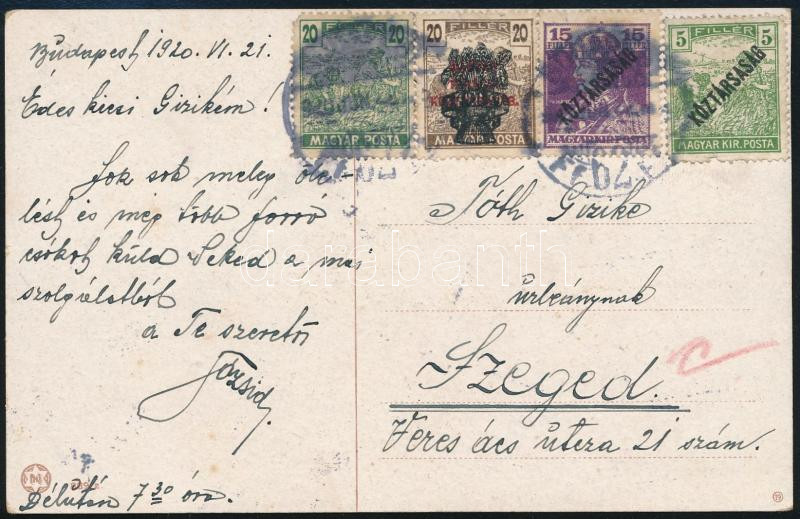 Budapest 1920. VI. 21.
Édes kicsi Gizikém!
Sok sok meleg öle-
lést és még több forró
csókot küld Neked a mai
szolgálatból
a Te szerető
Délután 7 30 óra.
20 FILLÉR 20
MAGYAR POSTA
20 FILLÉR 20
MAGYAR KIR. POSTA
15 FILLÉR 15
KÖZTÁRSASÁG
MAGYAR KIR. POSTA
5 FILLÉR 5
KÖZTÁRSASÁG
MAGYAR KIR. POSTA
Tóth Gizike
urleánynak
Szeged.
Veres ács utcza 21 szám.
darabanth